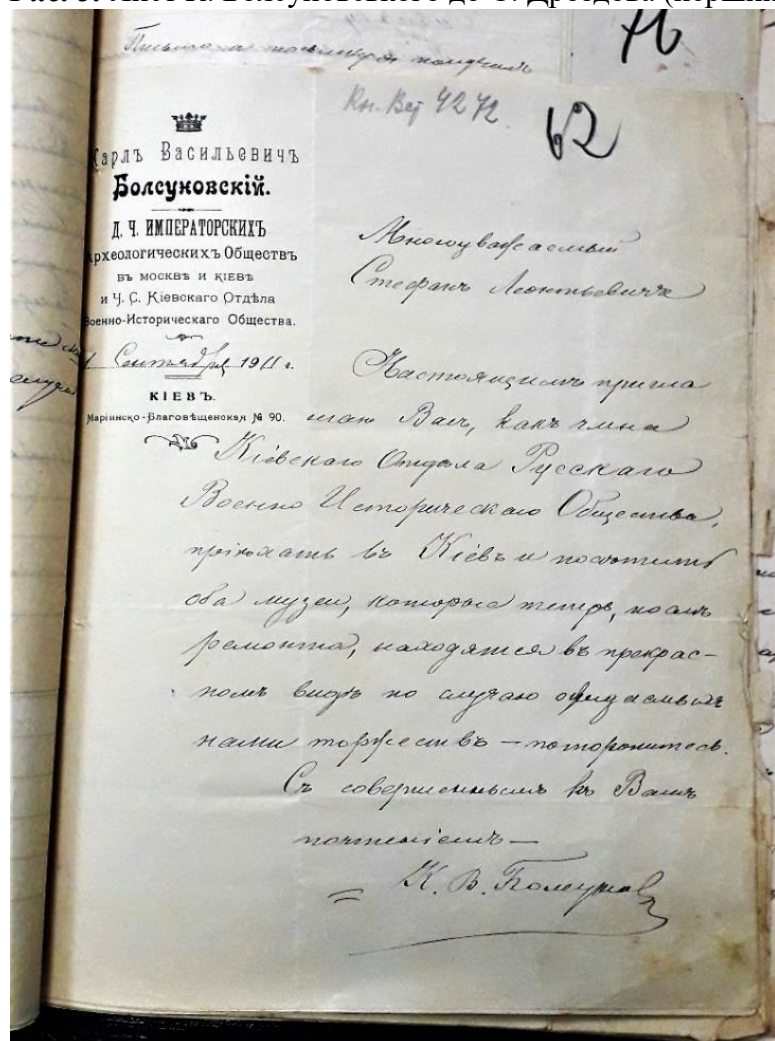 Рис. 3. Лист К. Болсуновського до С. Дроздова (перша
76
Письмо и посылку я получилъ
Кн. Вет 4272.
62
Карлъ Васильевичъ
Болсуновскій.
Д. Ч. ИМПЕРАТОРСКИХЪ
Археологическихъ Обществъ
въ москвѣ и кіевѣ
и Ч. С. Кіевскаго Отдѣла
Военно-Историческаго Общества.
1 Сентября 1911 г.
КІЕВЪ.
Маріинско-Благовѣщенская № 90.
Многоуважаемый
Стефанъ Леонтьевичъ
Настоящимъ пригла
шаю Васъ, какъ члена
Кіевскаго Отдѣла Русскаго
Военно Историческаго Общества,
пріѣхать въ Кіевъ и посѣтить
оба музеи, которые теперь, послѣ
ремонта, находятся въ прекрас-
номъ видѣ по случаю ожидаемыхъ
нами торжествъ — поторопитесь.
Съ совершеннымъ къ Вамъ
почтеніемъ —
К. В. Болсунов